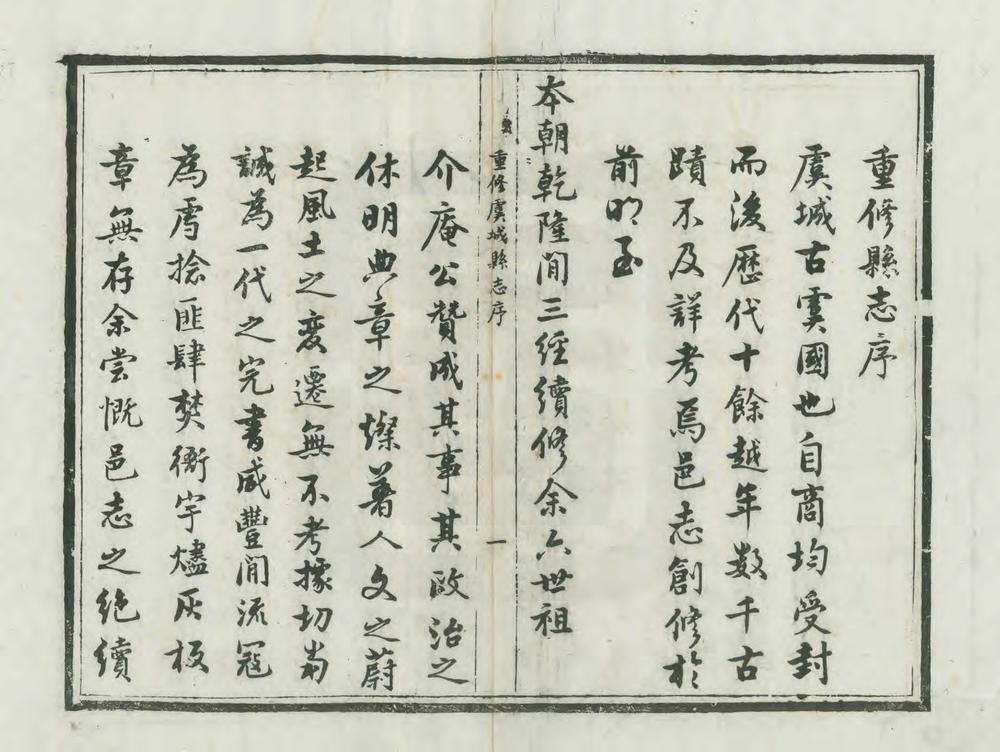 重修縣志序
虞城古虞國也自商均受封
而後歷代十餘越年数千古
蹟不及詳考焉邑志創修於
前明至
本朝乾隆间三經續修余六世祖
重修虞城縣志序
一
介庵公贊成其事其政治之
休明典章之燦著人文之蔚
起風土之变遷無不考據切當
誠為一代之完書咸豐间流寇
為虐捻匪肆焚衙宇燼灰板
章無存余嘗慨邑志之绝續